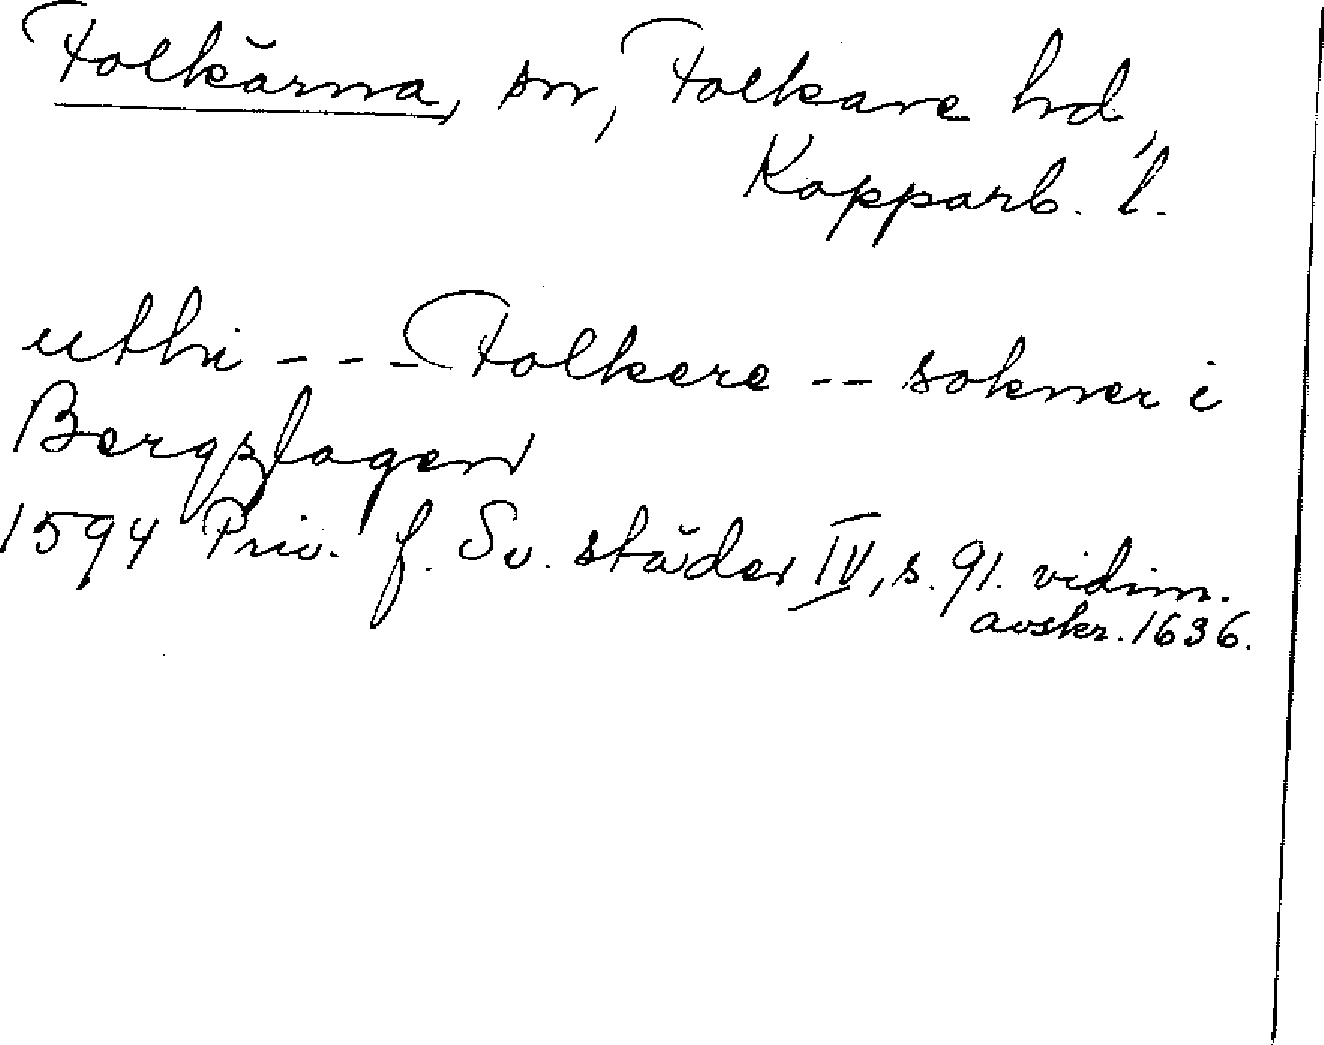 Folkärna, sn, Folkare hd,
Kopparb. l.
uthi --- Folkere -- sokner i
Bergzlagen
1594 Priv. f. Sv. städer IV, s. 91. vidim.
avskr. 1636.